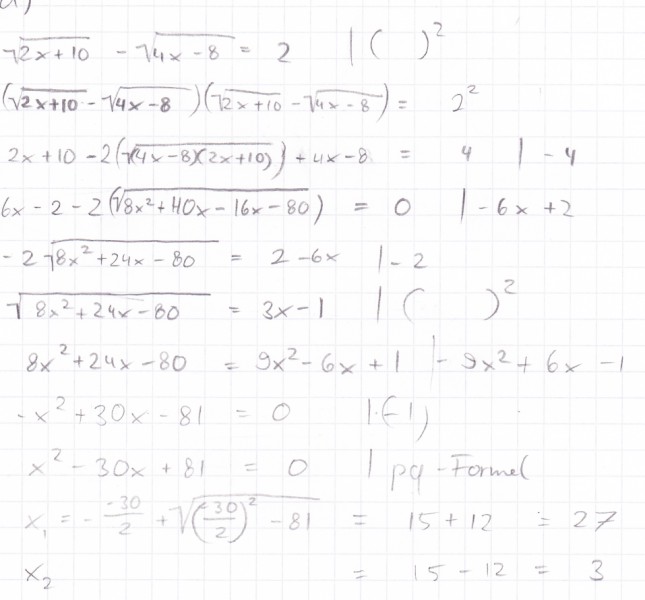 a)
√(2x+10) - √(4x-8) = 2 | ( )²
(√(2x+10) - √(4x-8))(√(2x+10) - √(4x-8)) = 2²
2x+10-2(√((4x-8)(2x+10))) + 4x-8 = 4 | -4
6x-2-2(√(8x²+40x-16x-80)) = 0 | -6x+2
-2√(8x²+24x-80) = 2-6x | -2
√(8x²+24x-80) = 3x-1 | ( )²
8x²+24x-80 = 9x²-6x+1 | -9x²+6x-1
-x²+30x-81 = 0 | ·(-1)
x²-30x+81 = 0 | pq-Formel
x₁ = - -30/2 + √((-30/2)²-81) = 15+12 = 27
x₂ = 15-12 = 3